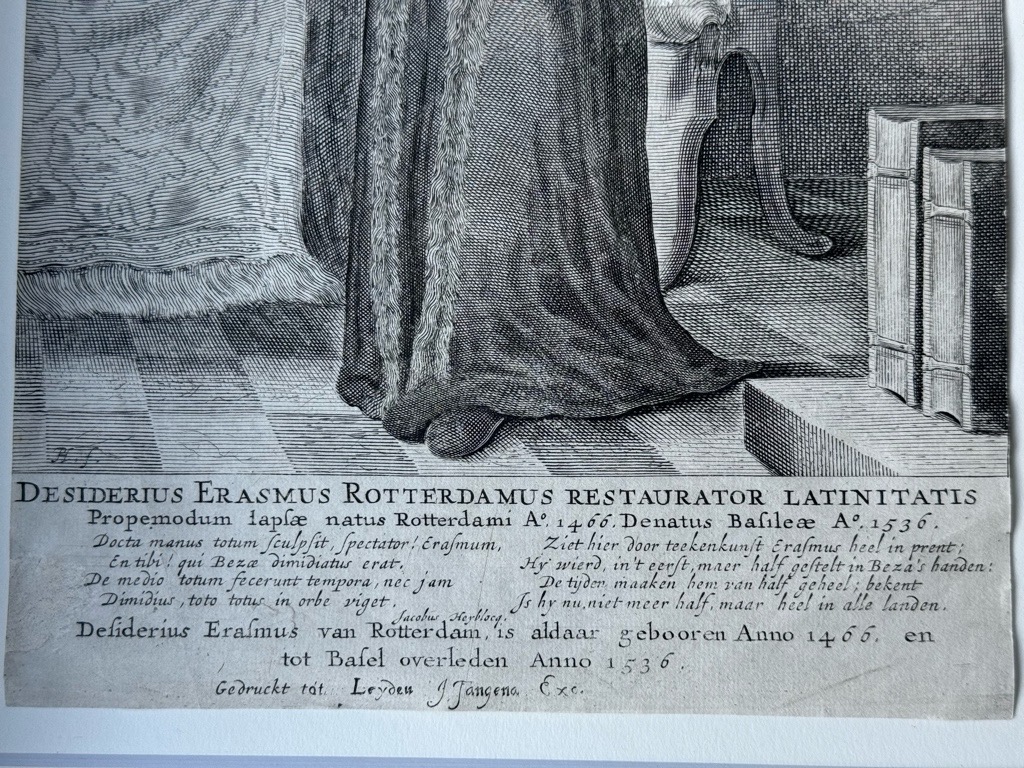 B. s.
DESIDERIUS ERASMUS ROTTERDAMUS RESTAURATOR LATINITATIS
Propemodum lapsæ natus Rotterdami Aº. 1466. Denatus Baſileæ Aº. 1536.
Docta manus totum ſculpſit, ſpectator! Eraſmum,
En tibi! qui Bezæ dimidiatus erat.
De medio totum fecerunt tempora, nec jam
Dimidius, toto totus in orbe viget.
Jacobus Heyblocq.
Ziet hier door teekenkunſt Eraſmus heel in prent;
Hy wierd, in't eerſt, maer half geſtelt in Beza's handen:
De tijden maaken hem van half geheel; bekent
Is hy nu, niet meer half, maar heel in alle landen.
Deſiderius Eraſmus van Rotterdam, is aldaar gebooren Anno 1466. en
tot Baſel overleden Anno 1536.
Gedruckt tot Leyden J Tangena. Exc.